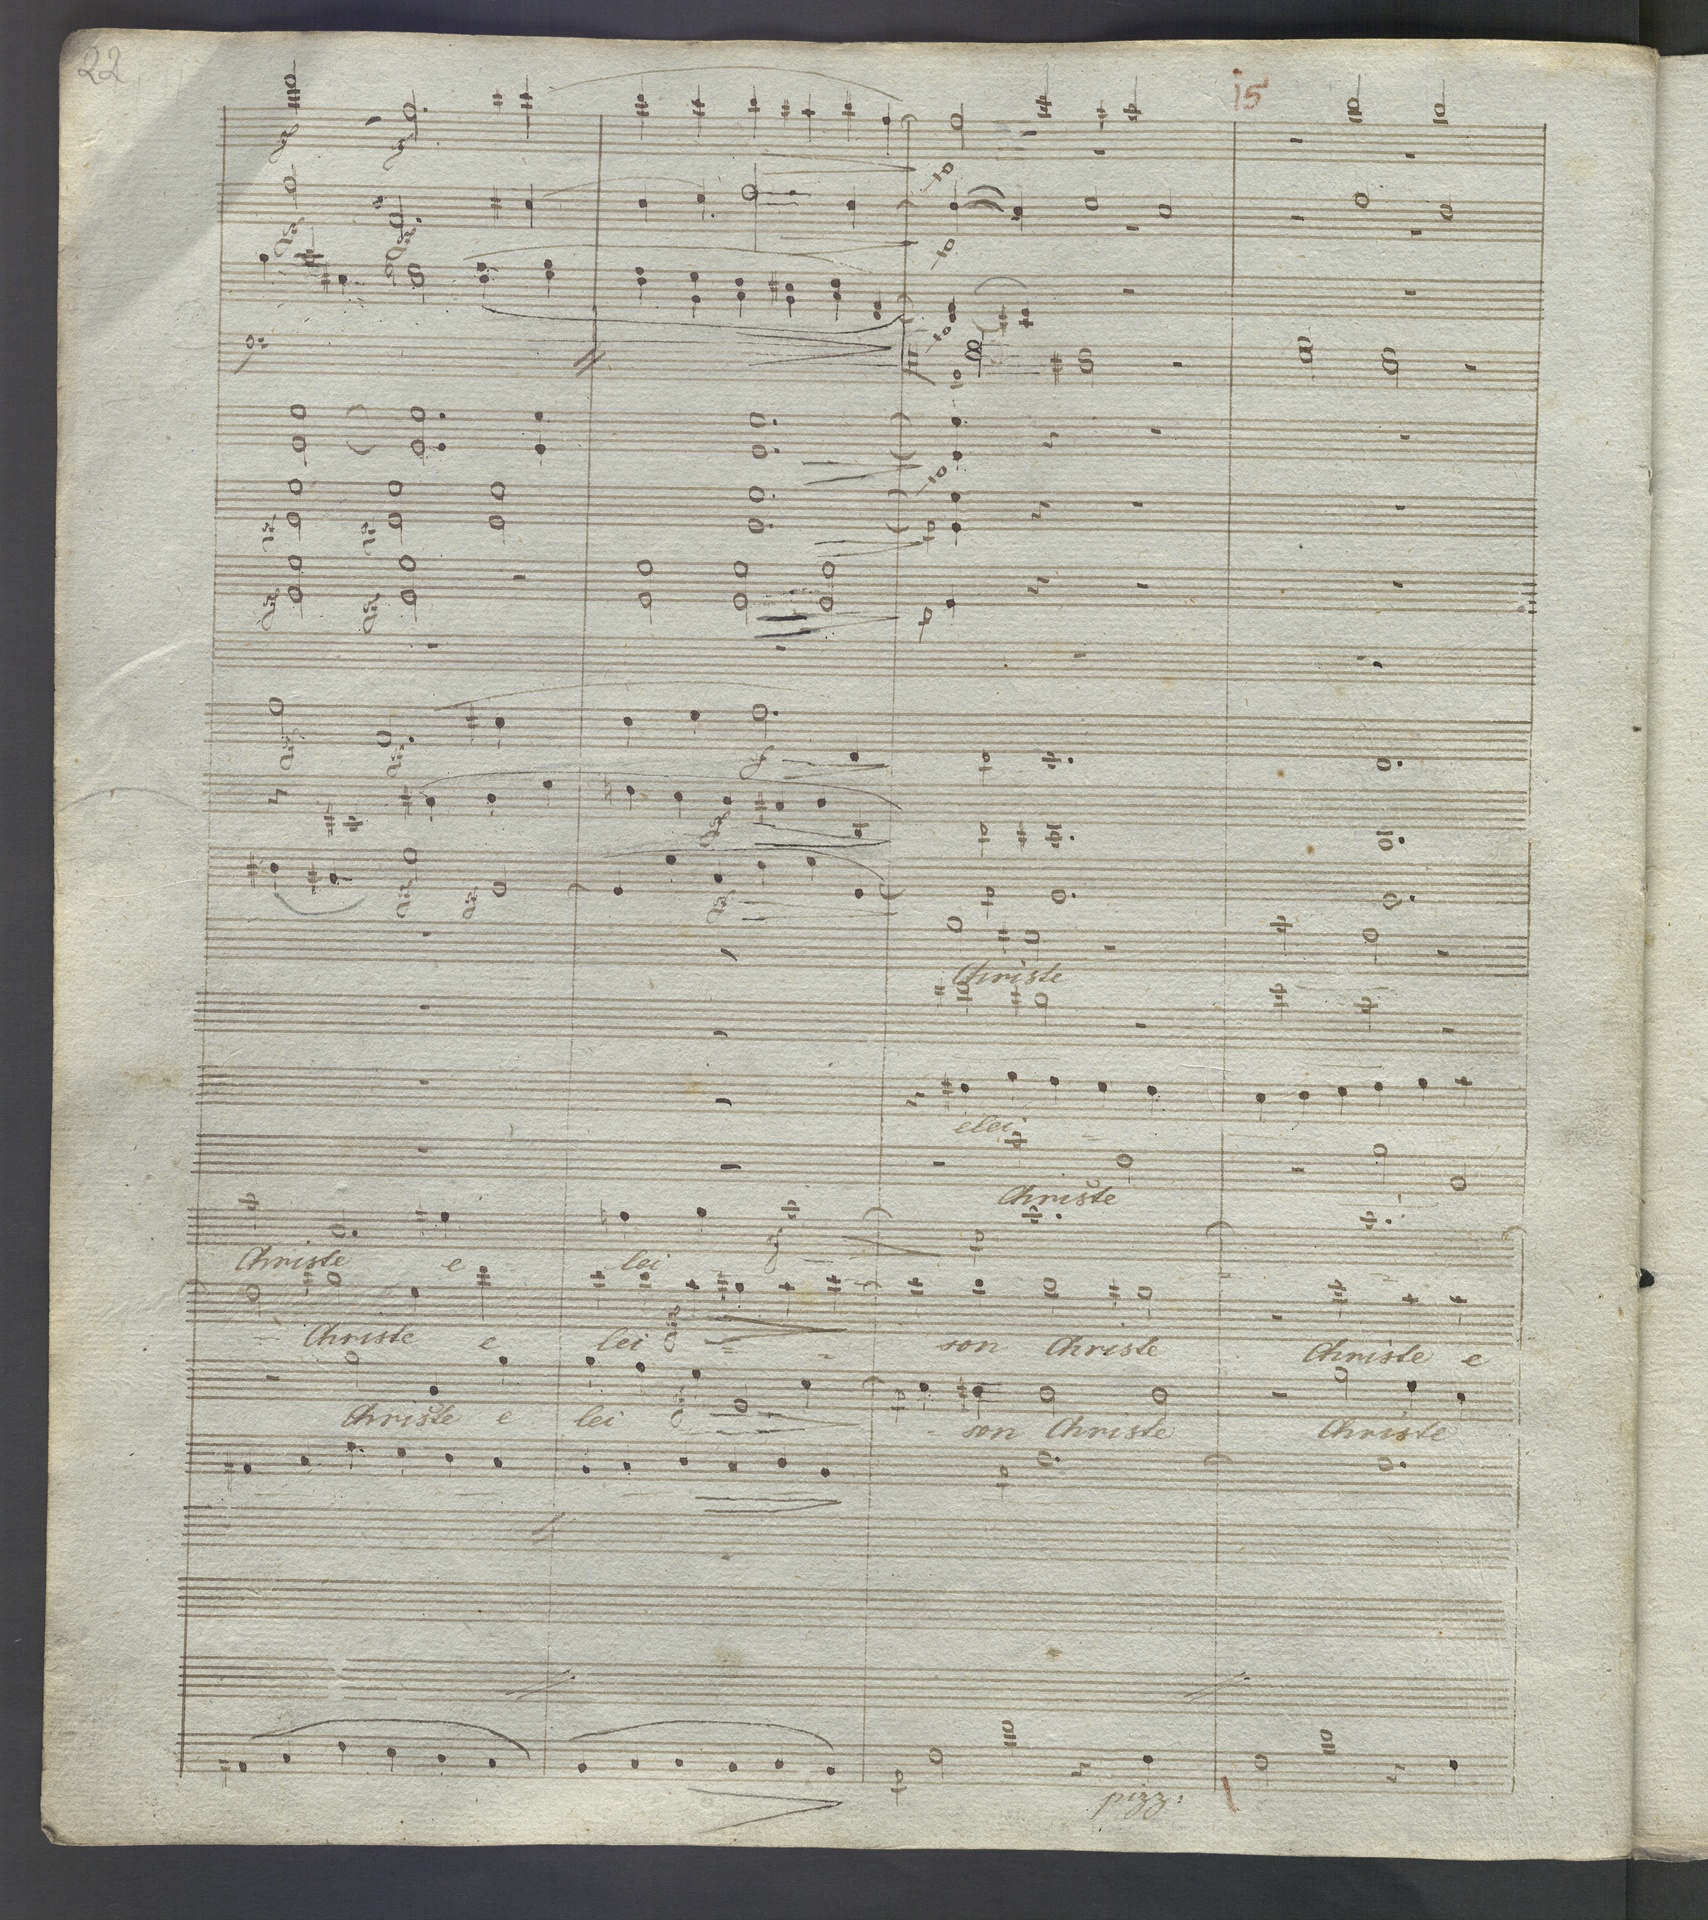 22
15
Christe
elei
Christe
Christe e lei
Christe e lei son Christe Christe e
Christe e lei son Christe Christe
pizz: